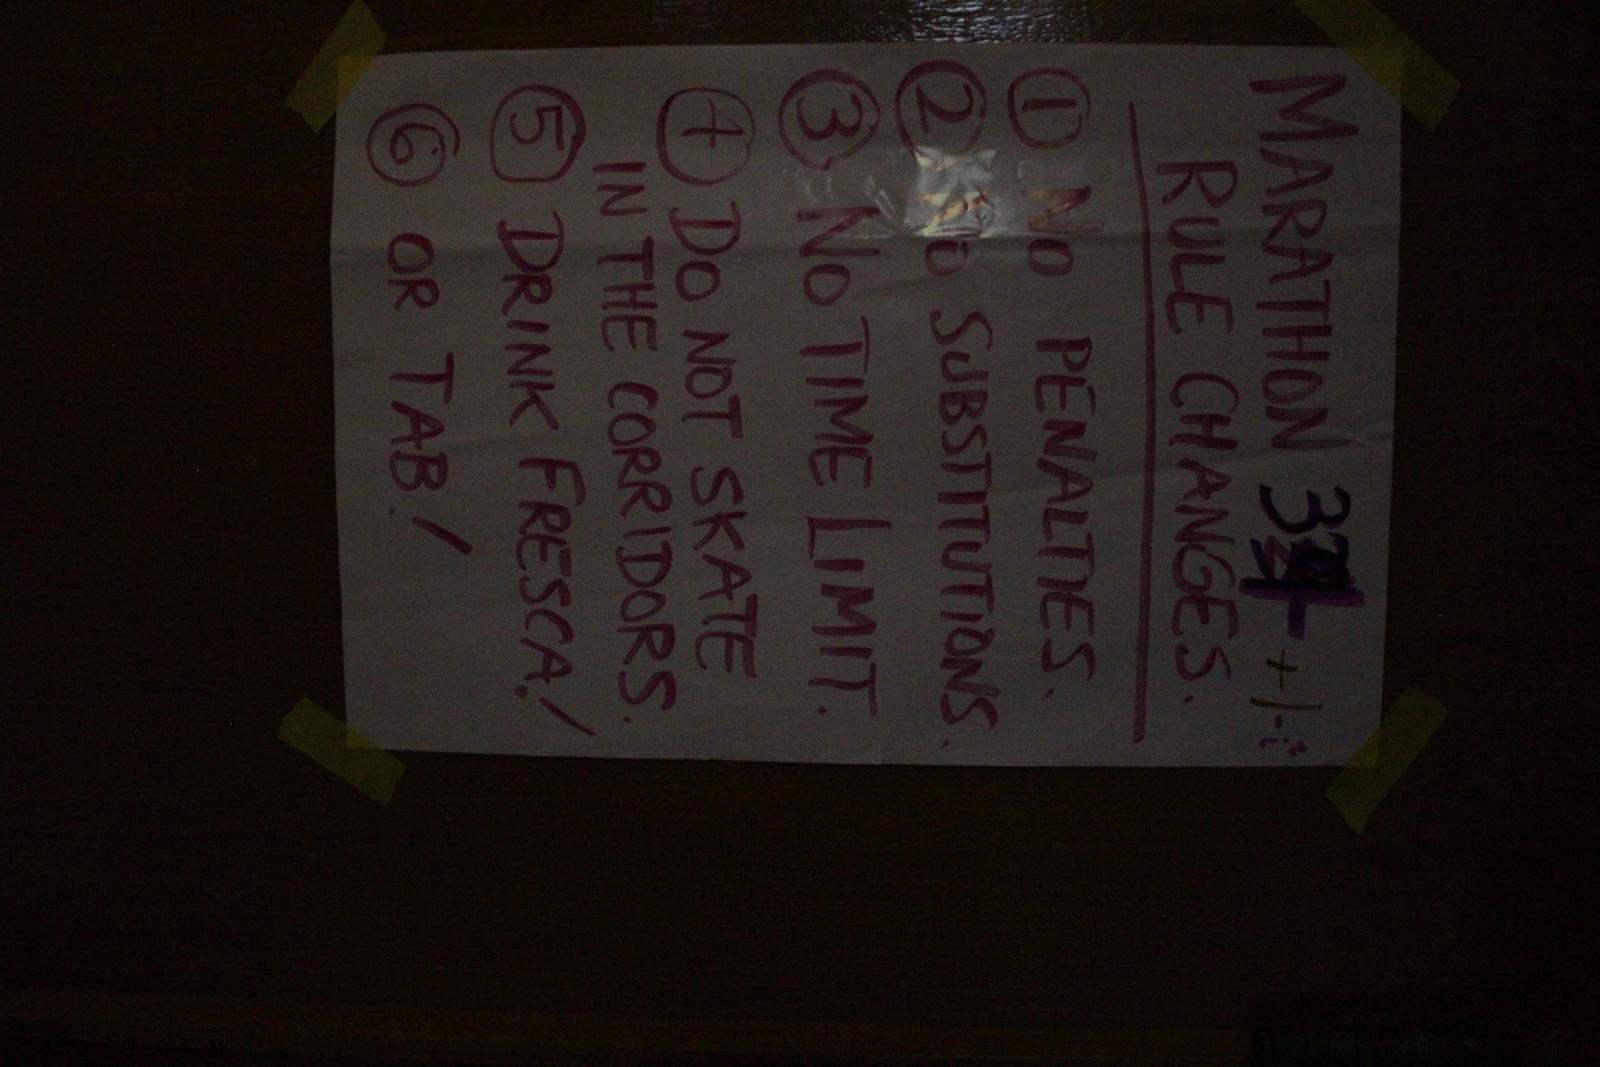 MARATHON 34 +/- i²
RULE CHANGES.
① No PENALTIES.
② No SUBSTITUTIONS.
③ No TIME LIMIT.
④ DO NOT SKATE
IN THE CORRIDORS.
⑤ DRINK FRESCA!
⑥ OR TAB!